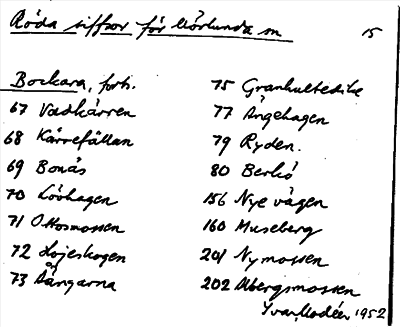 Röda siffror för Mörlunda sn
15
Bockara, forts.
67 Vadkärren
68 Kärrefällan
69 Bonäs
70 Lövhagen
71 Ottosmossen
72 Lojeskogen
73 Ängarna
75 Granhultedike
77 Ängehagen
79 Ryden.
80 Berkö
156 Nye vägen
160 Museberg
201 Nymossen
202 Abergsmossen
Yvar Modéer 1952